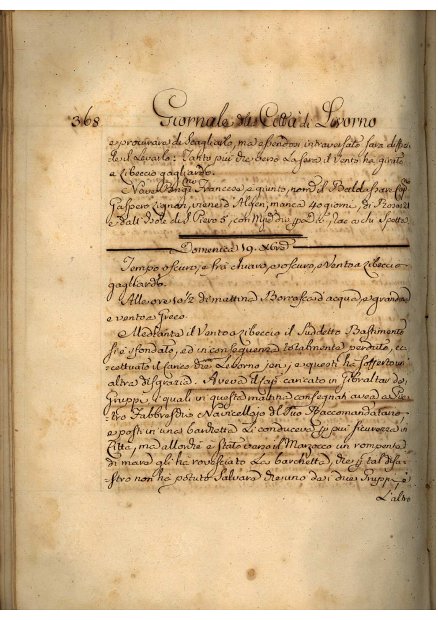 368 Giornale di Città di Livorno
e procurare di scagliarlo, ma essendosi intraversato sara diffi-
de il Levarlo: Tanto più che verso La sera il Vento ha girato
a Libeccio gagliardo.
Nave Francese è giunta, nom.ª il Baldassare Cap.
Gaspero viene d'Algeri, manca 40 giorni, di
e dall'Isole di S. Piero 5, con
Domenica 19. Xbre
Tempo oscuro, e frà chiaro, e oscuro, e Vento a Libeccio
gagliardo.
Alle ore di mattina Borrasca d'acqua, e grandine
e vento a Greco.
Mediante il Vento a Libeccio il suddetto Bastimento
si è sfondato, ed in conseguenza totalmente perduto, ec-
cettuato il carico di Livorno e questi ha sofferto un
altra disgrazia. Aveva il Cap. caricato in Gibilterra due
Gruppi i quali in questa mattina consegnati aveva a Pie-
tro Fabbri suo Navicellajo del suo Raccomandatario
e posti in una barchetta Li conduceva p. più sicurezza in
Città, ma allorchè è stato verso il Marzocco un rompente
di mare gli ha rovesciato La barchetta, che p. tal disa-
stro non ha potuto Salvare che uno dei due Gruppi, e
L'altro